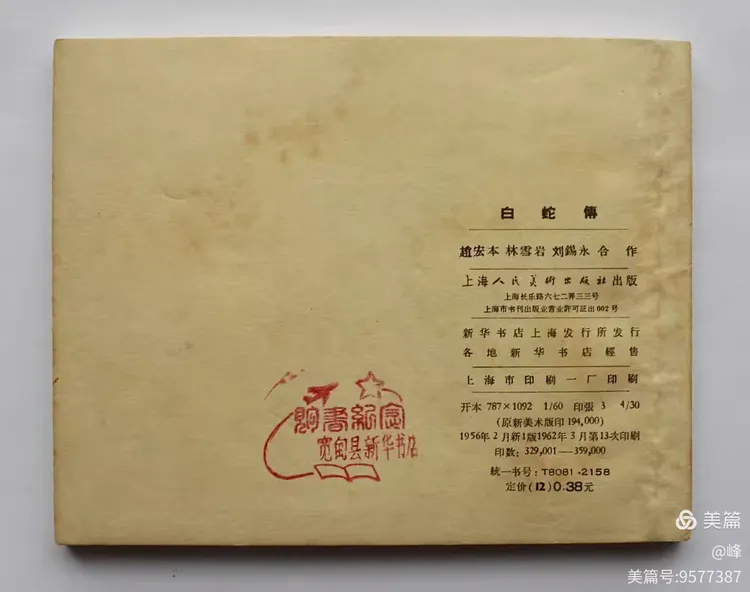 白蛇傳
趙宏本 林雪岩 刘錫永 合作
上海人民美術出版社出版
上海长乐路六七二弄三三号
上海市书刊出版业营业許可証出002号
新华书店上海发行所发行
各地新华书店經售
上海市印刷一厂印刷
开本 787×1092 1/60 印張 3 4/30
(原新美术版印 194,000)
1956年2月新1版1962年3月第13次印刷
印数: 329,001—359,000
統一书号: T8081·2158
定价(12)0.38元
购書紀念
宽甸县新华书店
美篇
@峰
美篇号:9577387